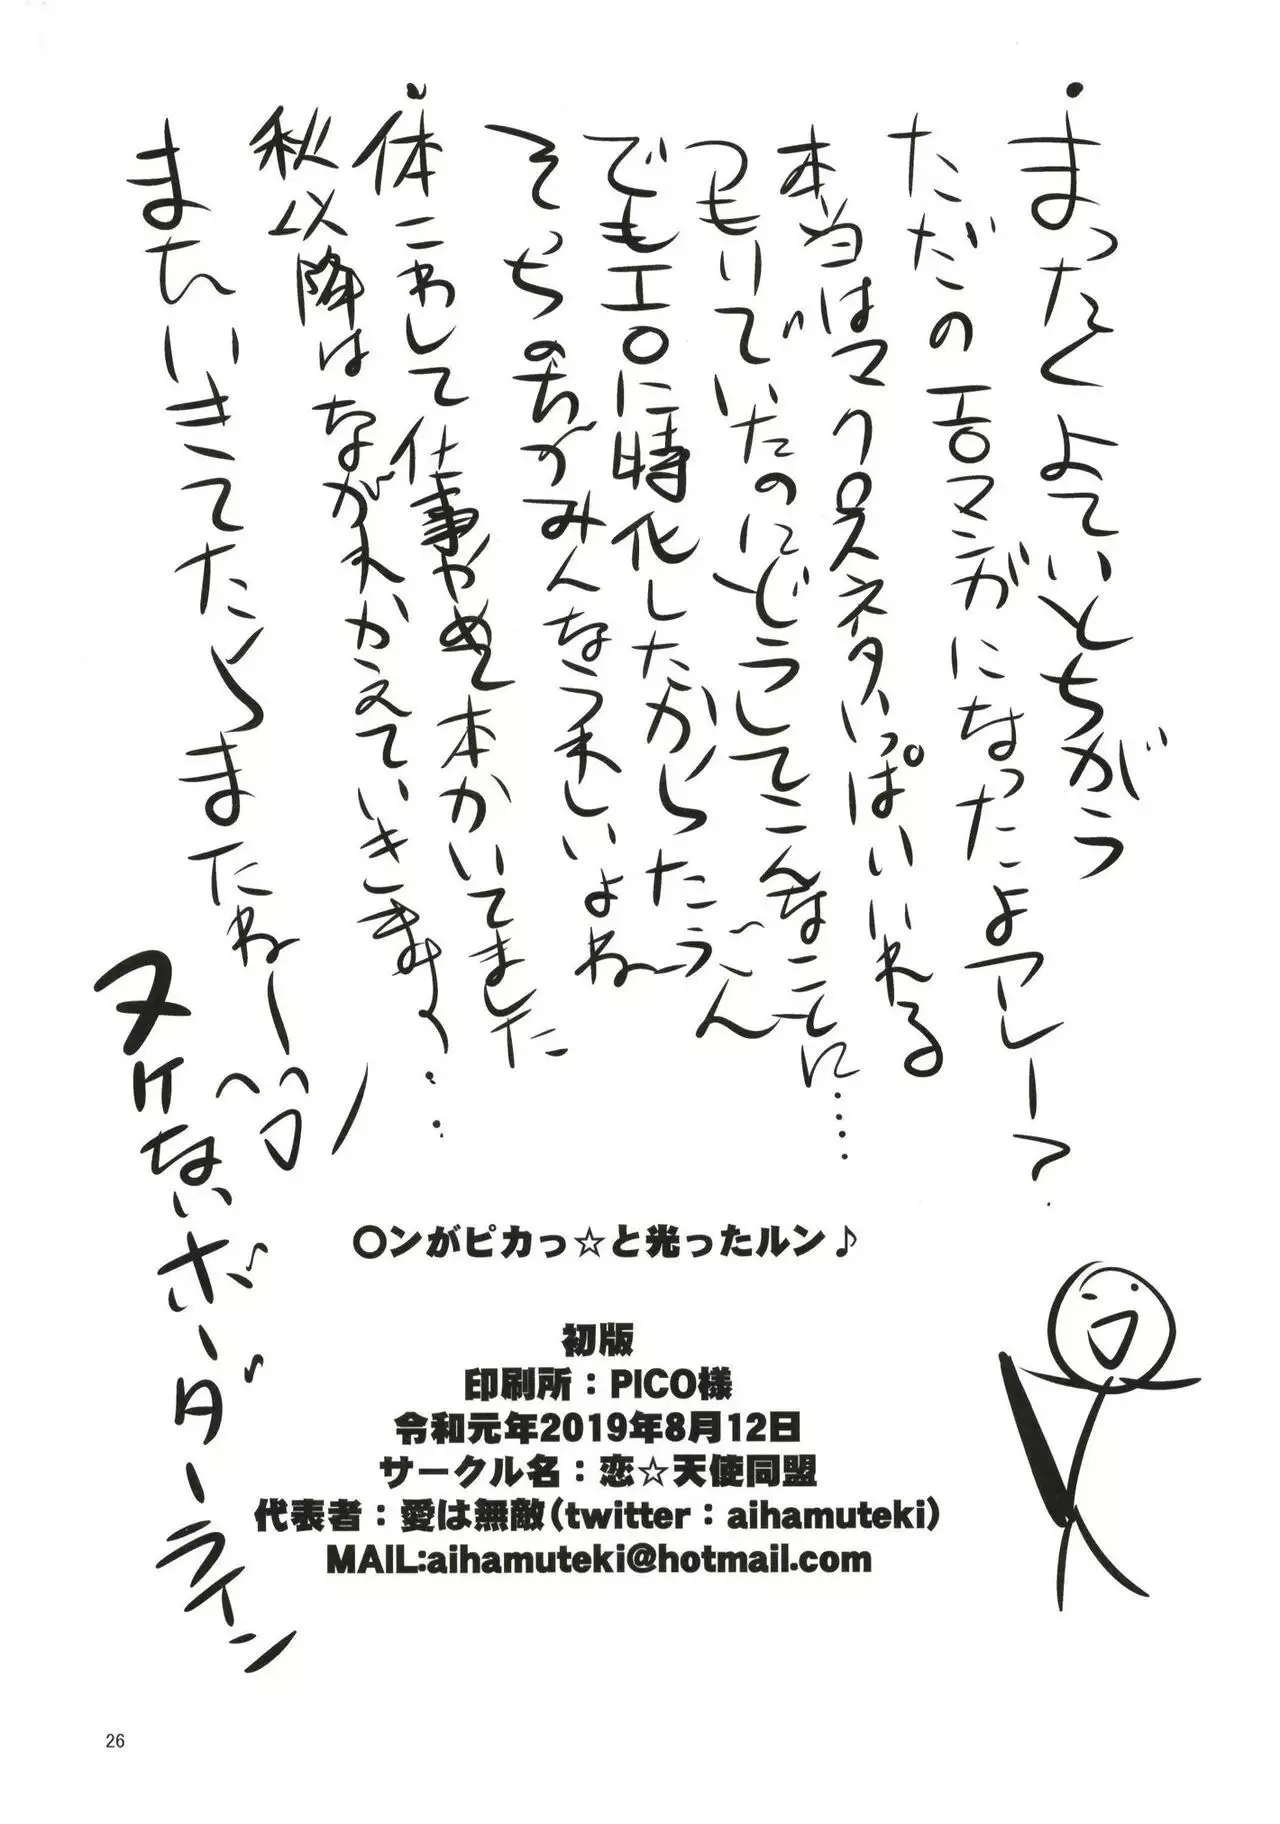 ・まったくよていとちがう
ただのエロマンガになったよアレー?
本当はマクロスネタいっぱいいれる
つもりでいたのにどうしてこんなことに……
でもエロに特化したからたぶん
そっちのちがみんなうれしいよねー
・体こわして仕事やめて本かいてました
秋以降はながれかえていきますー…
またいきてたらまたねー
ヌけないボーダーライン
〇ンがピカっ☆と光ったルン♪
初版
印刷所：PICO様
令和元年2019年8月12日
サークル名：恋☆天使同盟
代表者：愛は無敵(twitter：aihamuteki)
MAIL:aihamuteki@hotmail.com
26